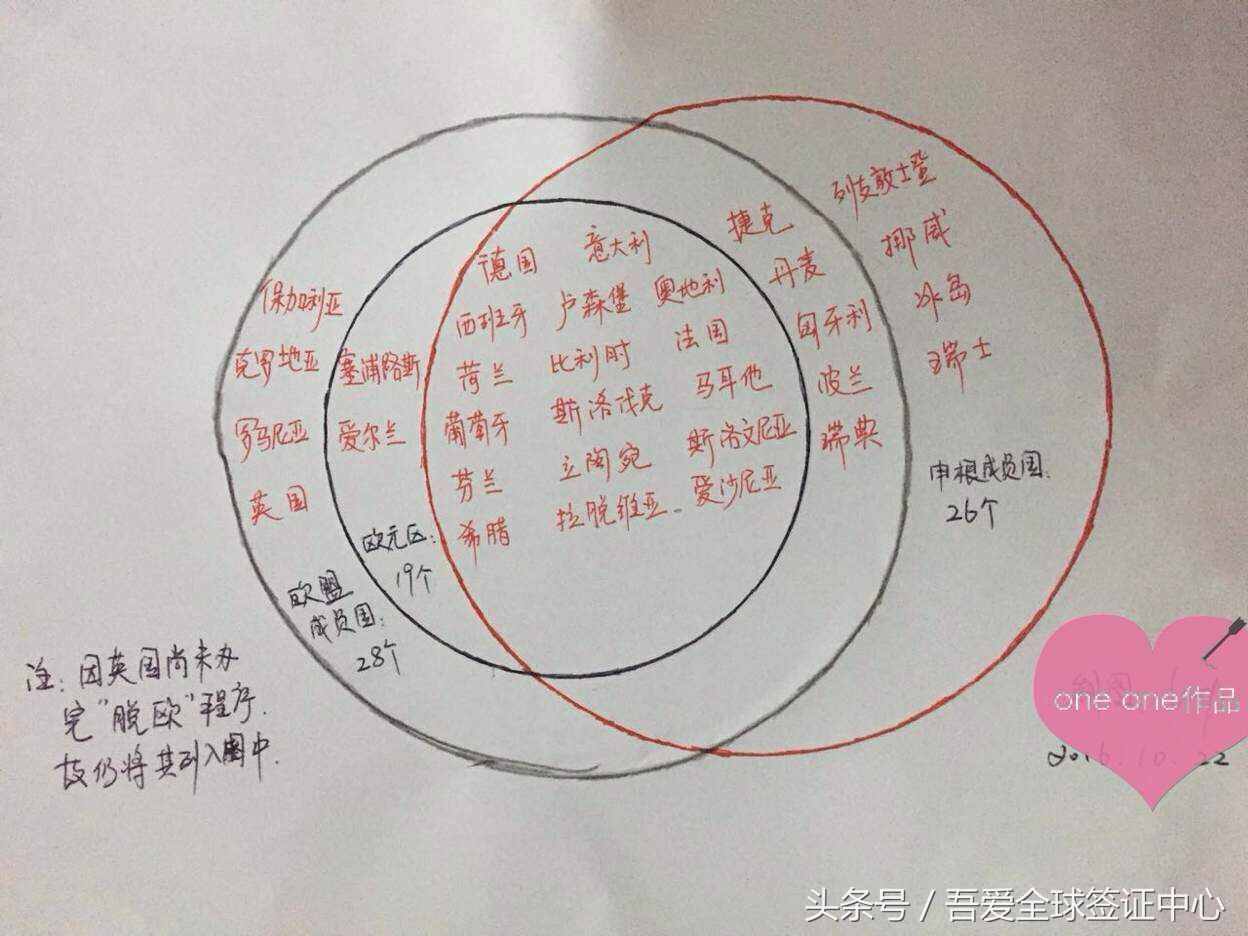 列支敦士登
捷克
挪威
德国 意大利
丹麦
保加利亚
西班牙 卢森堡 奥地利
冰岛
匈牙利
克罗地亚 塞浦路斯
荷兰 比利时 法国
瑞士
波兰
葡萄牙 斯洛伐克 马耳他
罗马尼亚 爱尔兰
瑞典
芬兰 立陶宛 斯洛文尼亚
申根成员国:
26个
英国
希腊 拉脱维亚 爱沙尼亚
欧元区:
19个
欧盟
成员国:
28个
注:因英国尚未办
完"脱欧"程序.
故仍将其列入图中.
one one作品
2016.10.22
头条号 / 吾爱全球签证中心